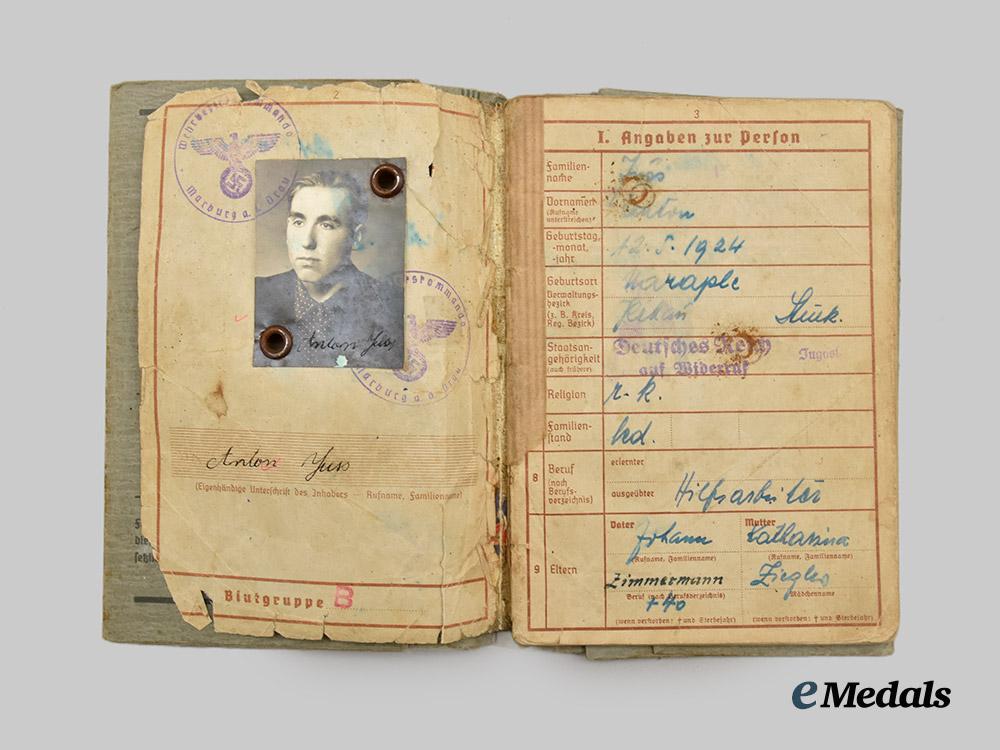 2
Marburg a. d. Drau
Anton Juss
Marburg a. d. Drau
Anton Juss
(Eigenhändige Unterschrift des Inhabers — Rufname, Familienname)
Blutgruppe B
3
I. Angaben zur Person
Familien-
name
Vornamen
(Rufname
unterstreichen)
Anton
Geburtstag,
-monat,
-jahr
12. 5. 1924
Geburtsort
Verwaltungs-
bezirk
(z. B. Kreis,
Reg. Bezirk)
Staatsan-
gehörigkeit
(auch frühere)
Deutsches Reich
auf Widerruf
Jugosl.
Religion
r. k.
Familien-
stand
led.
8
Beruf
(nach
Berufs-
verzeichnis)
erlernter
ausgeübter
Hilfsarbeiter
9
Eltern
Vater
Johann
(Rufname, Familienname)
Zimmermann
Beruf (nach Berufsverzeichnis)
† 40
(wenn verstorben: † und Sterbejahr)
Mutter
Katharina
(Rufname, Familienname)
Ziegler
Mädchenname
(wenn verstorben: † und Sterbejahr)
eMedals